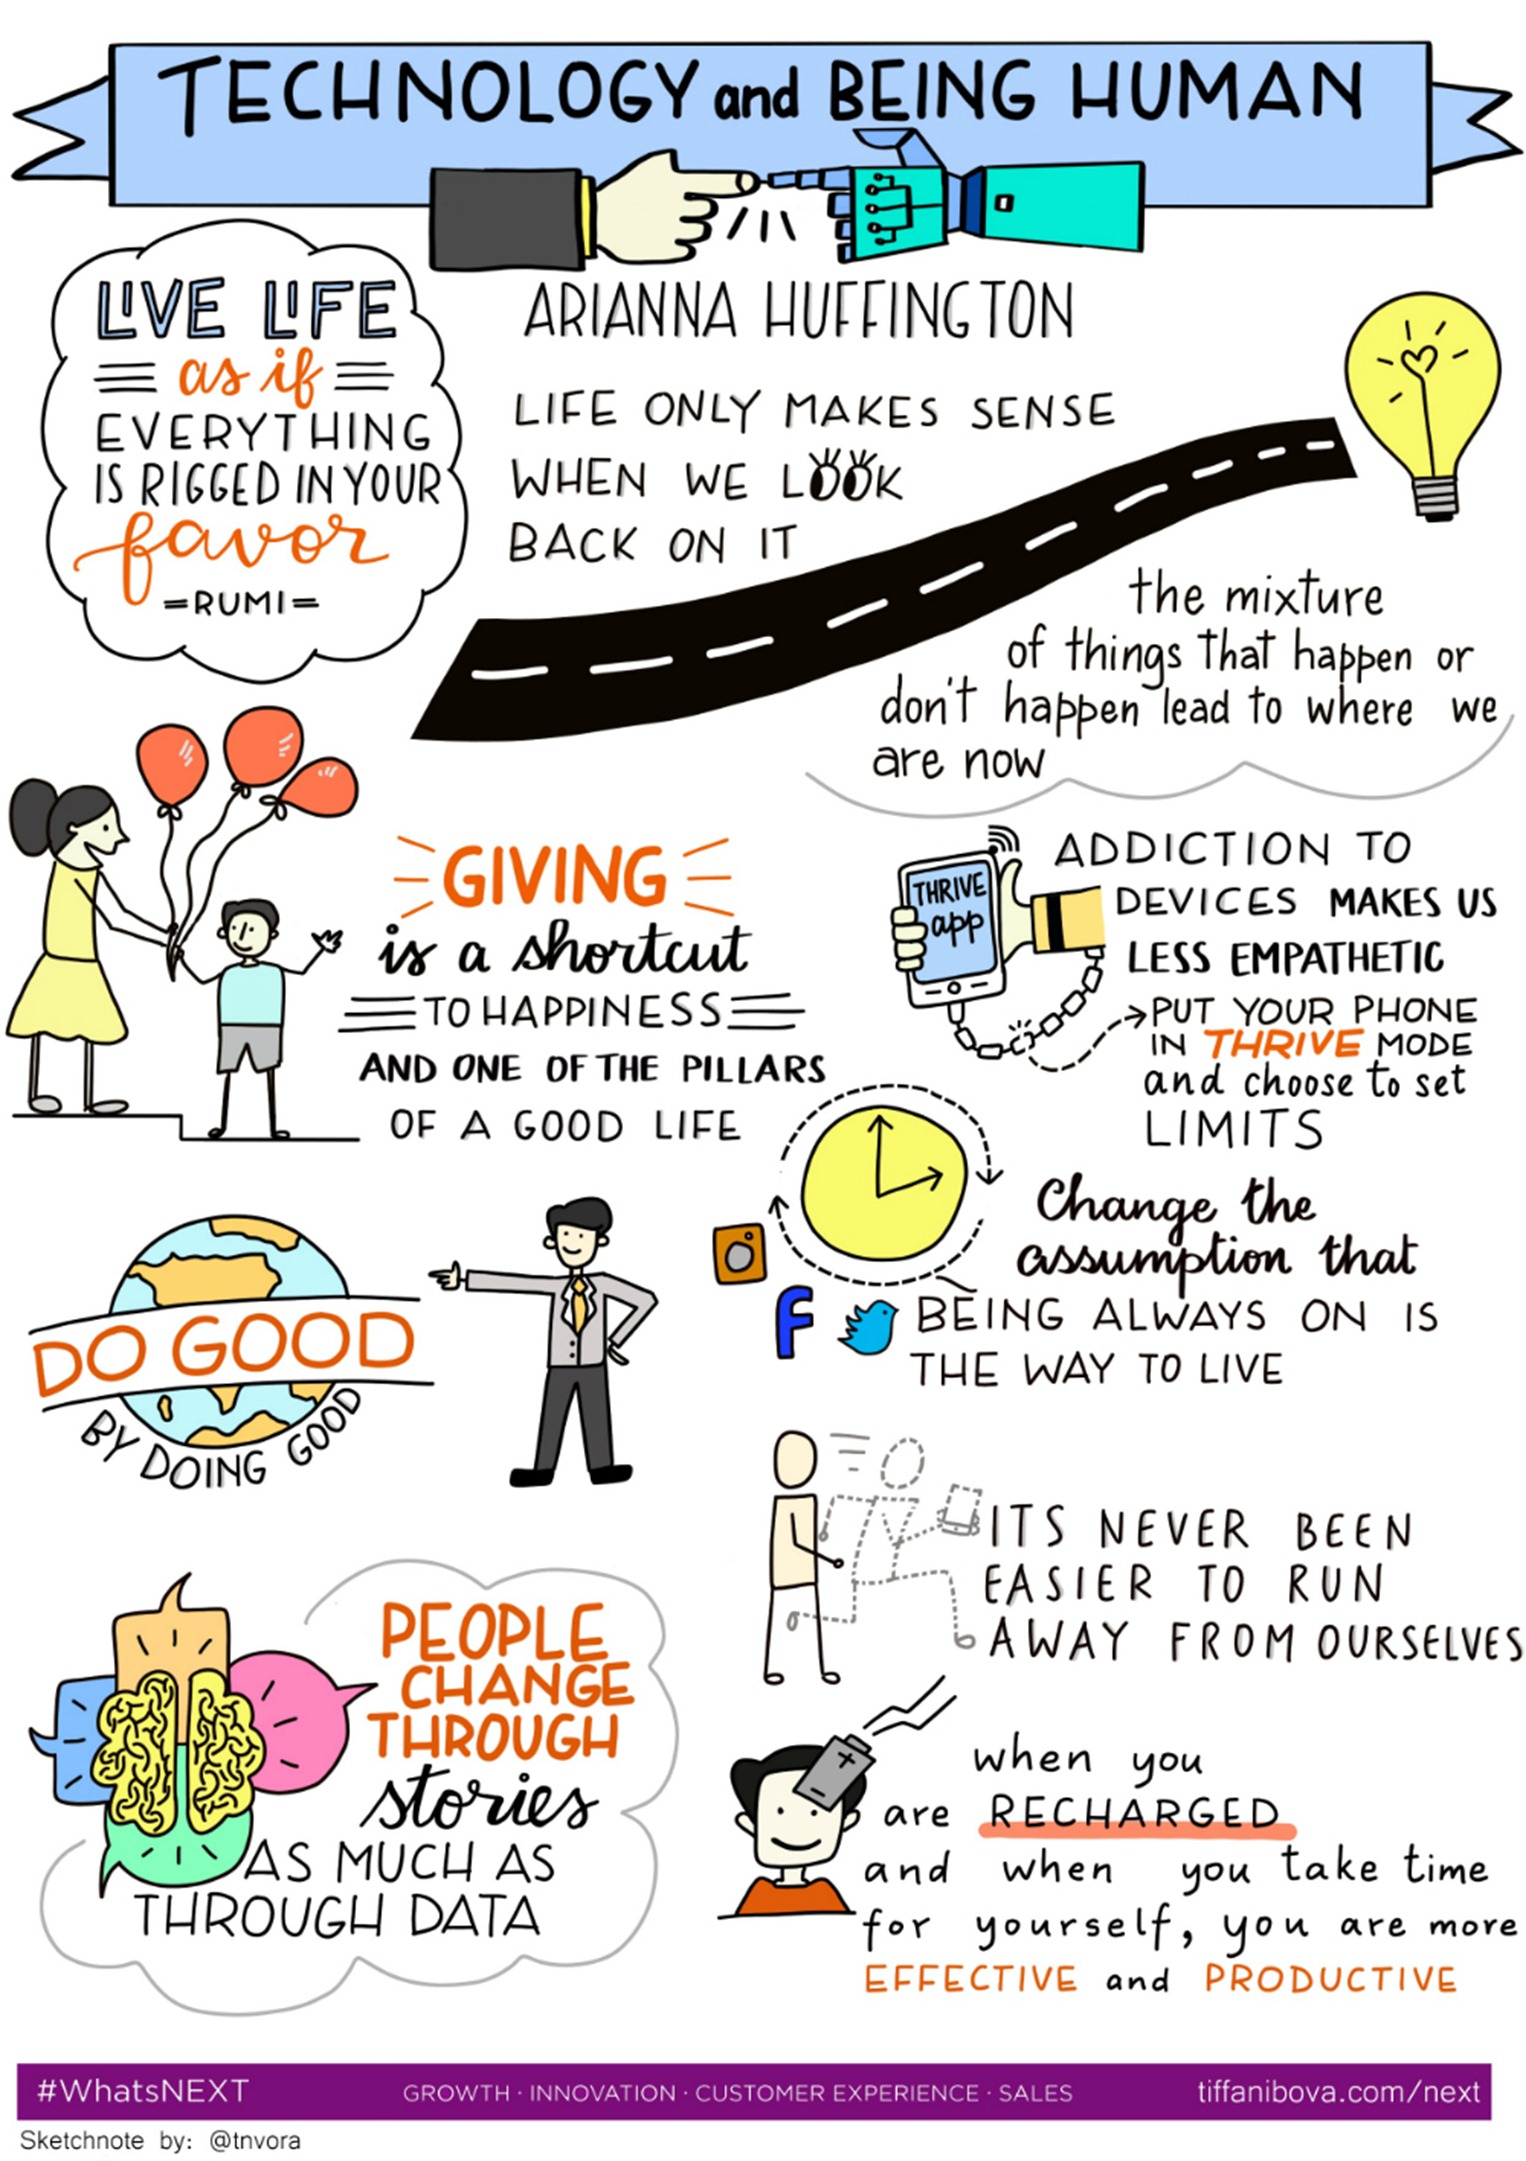 TECHNOLOGY and BEING HUMAN
LIVE LIFE
as if
EVERYTHING
IS RIGGED IN YOUR
favor
=RUMI=
ARIANNA HUFFINGTON
LIFE ONLY MAKES SENSE
WHEN WE LOOK
BACK ON IT
the mixture
of things that happen or
don't happen lead to where we
are now
GIVING
is a shortcut
TO HAPPINESS
AND ONE OF THE PILLARS
OF A GOOD LIFE
THRIVE
app
ADDICTION TO
DEVICES MAKES US
LESS EMPATHETIC
PUT YOUR PHONE
IN THRIVE MODE
and choose to set
LIMITS
Change the
assumption that
BEING ALWAYS ON IS
THE WAY TO LIVE
f
DO GOOD
BY DOING GOOD
ITS NEVER BEEN
EASIER TO RUN
AWAY FROM OURSELVES
PEOPLE
CHANGE
THROUGH
stories
AS MUCH AS
THROUGH DATA
when you
are RECHARGED
and when you take time
for yourself, you are more
EFFECTIVE and PRODUCTIVE
+
-
#WhatsNEXT
GROWTH · INNOVATION · CUSTOMER EXPERIENCE · SALES
tiffanibova.com/next
Sketchnote by: @tnvora